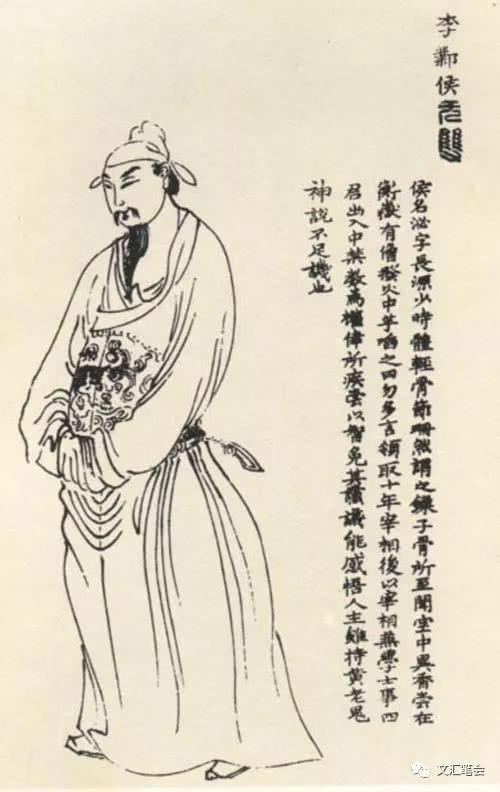 李鄴侯
侯名泌字長源少時體輕骨節珊然謂之鎖子骨所至聞室中異香嘗在
衡嶽有僧撥火中芋啗之曰勿多言領取十年宰相後以宰相兼學士事四
召出入中禁數為權倖所疾嘗以智免其讜議能感悟人主雖持黃老鬼
神說不足譏也
文汇笔会